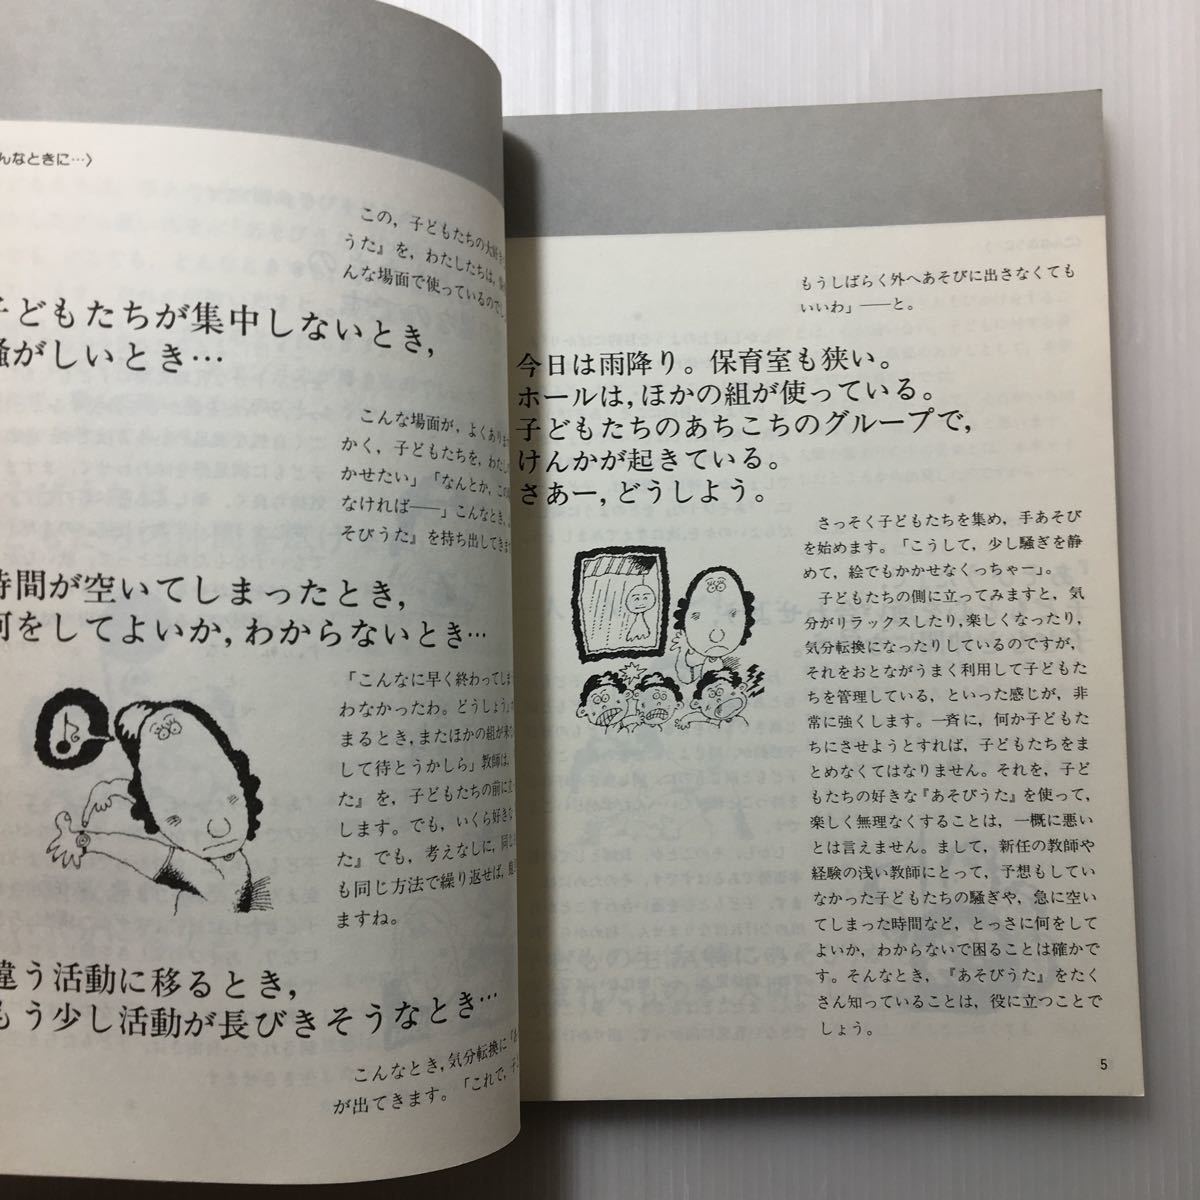 んなときに…〉
この，子どもたちの大好き
うた』を，わたしたちは，
んな場面で使っているのでし
子どもたちが集中しないとき，
騒がしいとき…
こんな場面が，よくあり
かく，子どもたちを，わたし
かせたい」「なんとか，この
なければ——」こんなとき，
そびうた』を持ち出してきま
時間が空いてしまったとき，
何をしてよいか，わからないとき…
「こんなに早く終わってしま
わなかったわ。どうしよう」
まるとき，またほかの組が来
して待とうかしら」教師は，
た』を，子どもたちの前に
します。でも，いくら好きな
た』でも，考えなしに，同じ
も同じ方法で繰り返せば，
ますね。
違う活動に移るとき，
もう少し活動が長びきそうなとき…
こんなとき，気分転換に「
が出てきます。「これで，子
もうしばらく外へあそびに出さなくても
いいわ」——と。
今日は雨降り。保育室も狭い。
ホールは，ほかの組が使っている。
子どもたちのあちこちのグループで，
けんかが起きている。
さあー，どうしよう。
さっそく子どもたちを集め，手あそび
を始めます。「こうして，少し騒ぎを静
めて，絵でもかかせなくっちゃー」。
子どもたちの側に立ってみますと，気
分がリラックスしたり，楽しくなったり，
気分転換になったりしているのですが，
それをおとながうまく利用して子どもた
ちを管理している，といった感じが，非
常に強くします。一斉に，何か子どもた
ちにさせようとすれば，子どもたちをま
とめなくてはなりません。それを，子ど
もたちの好きな『あそびうた』を使って，
楽しく無理なくすることは，一概に悪い
とは言えません。まして，新任の教師や
経験の浅い教師にとって，予想もしてい
なかった子どもたちの騒ぎや，急に空い
てしまった時間など，とっさに何をして
よいか，わからないで困ることは確かで
す。そんなとき，『あそびうた』をたく
さん知っていることは，役に立つことで
しょう。
5